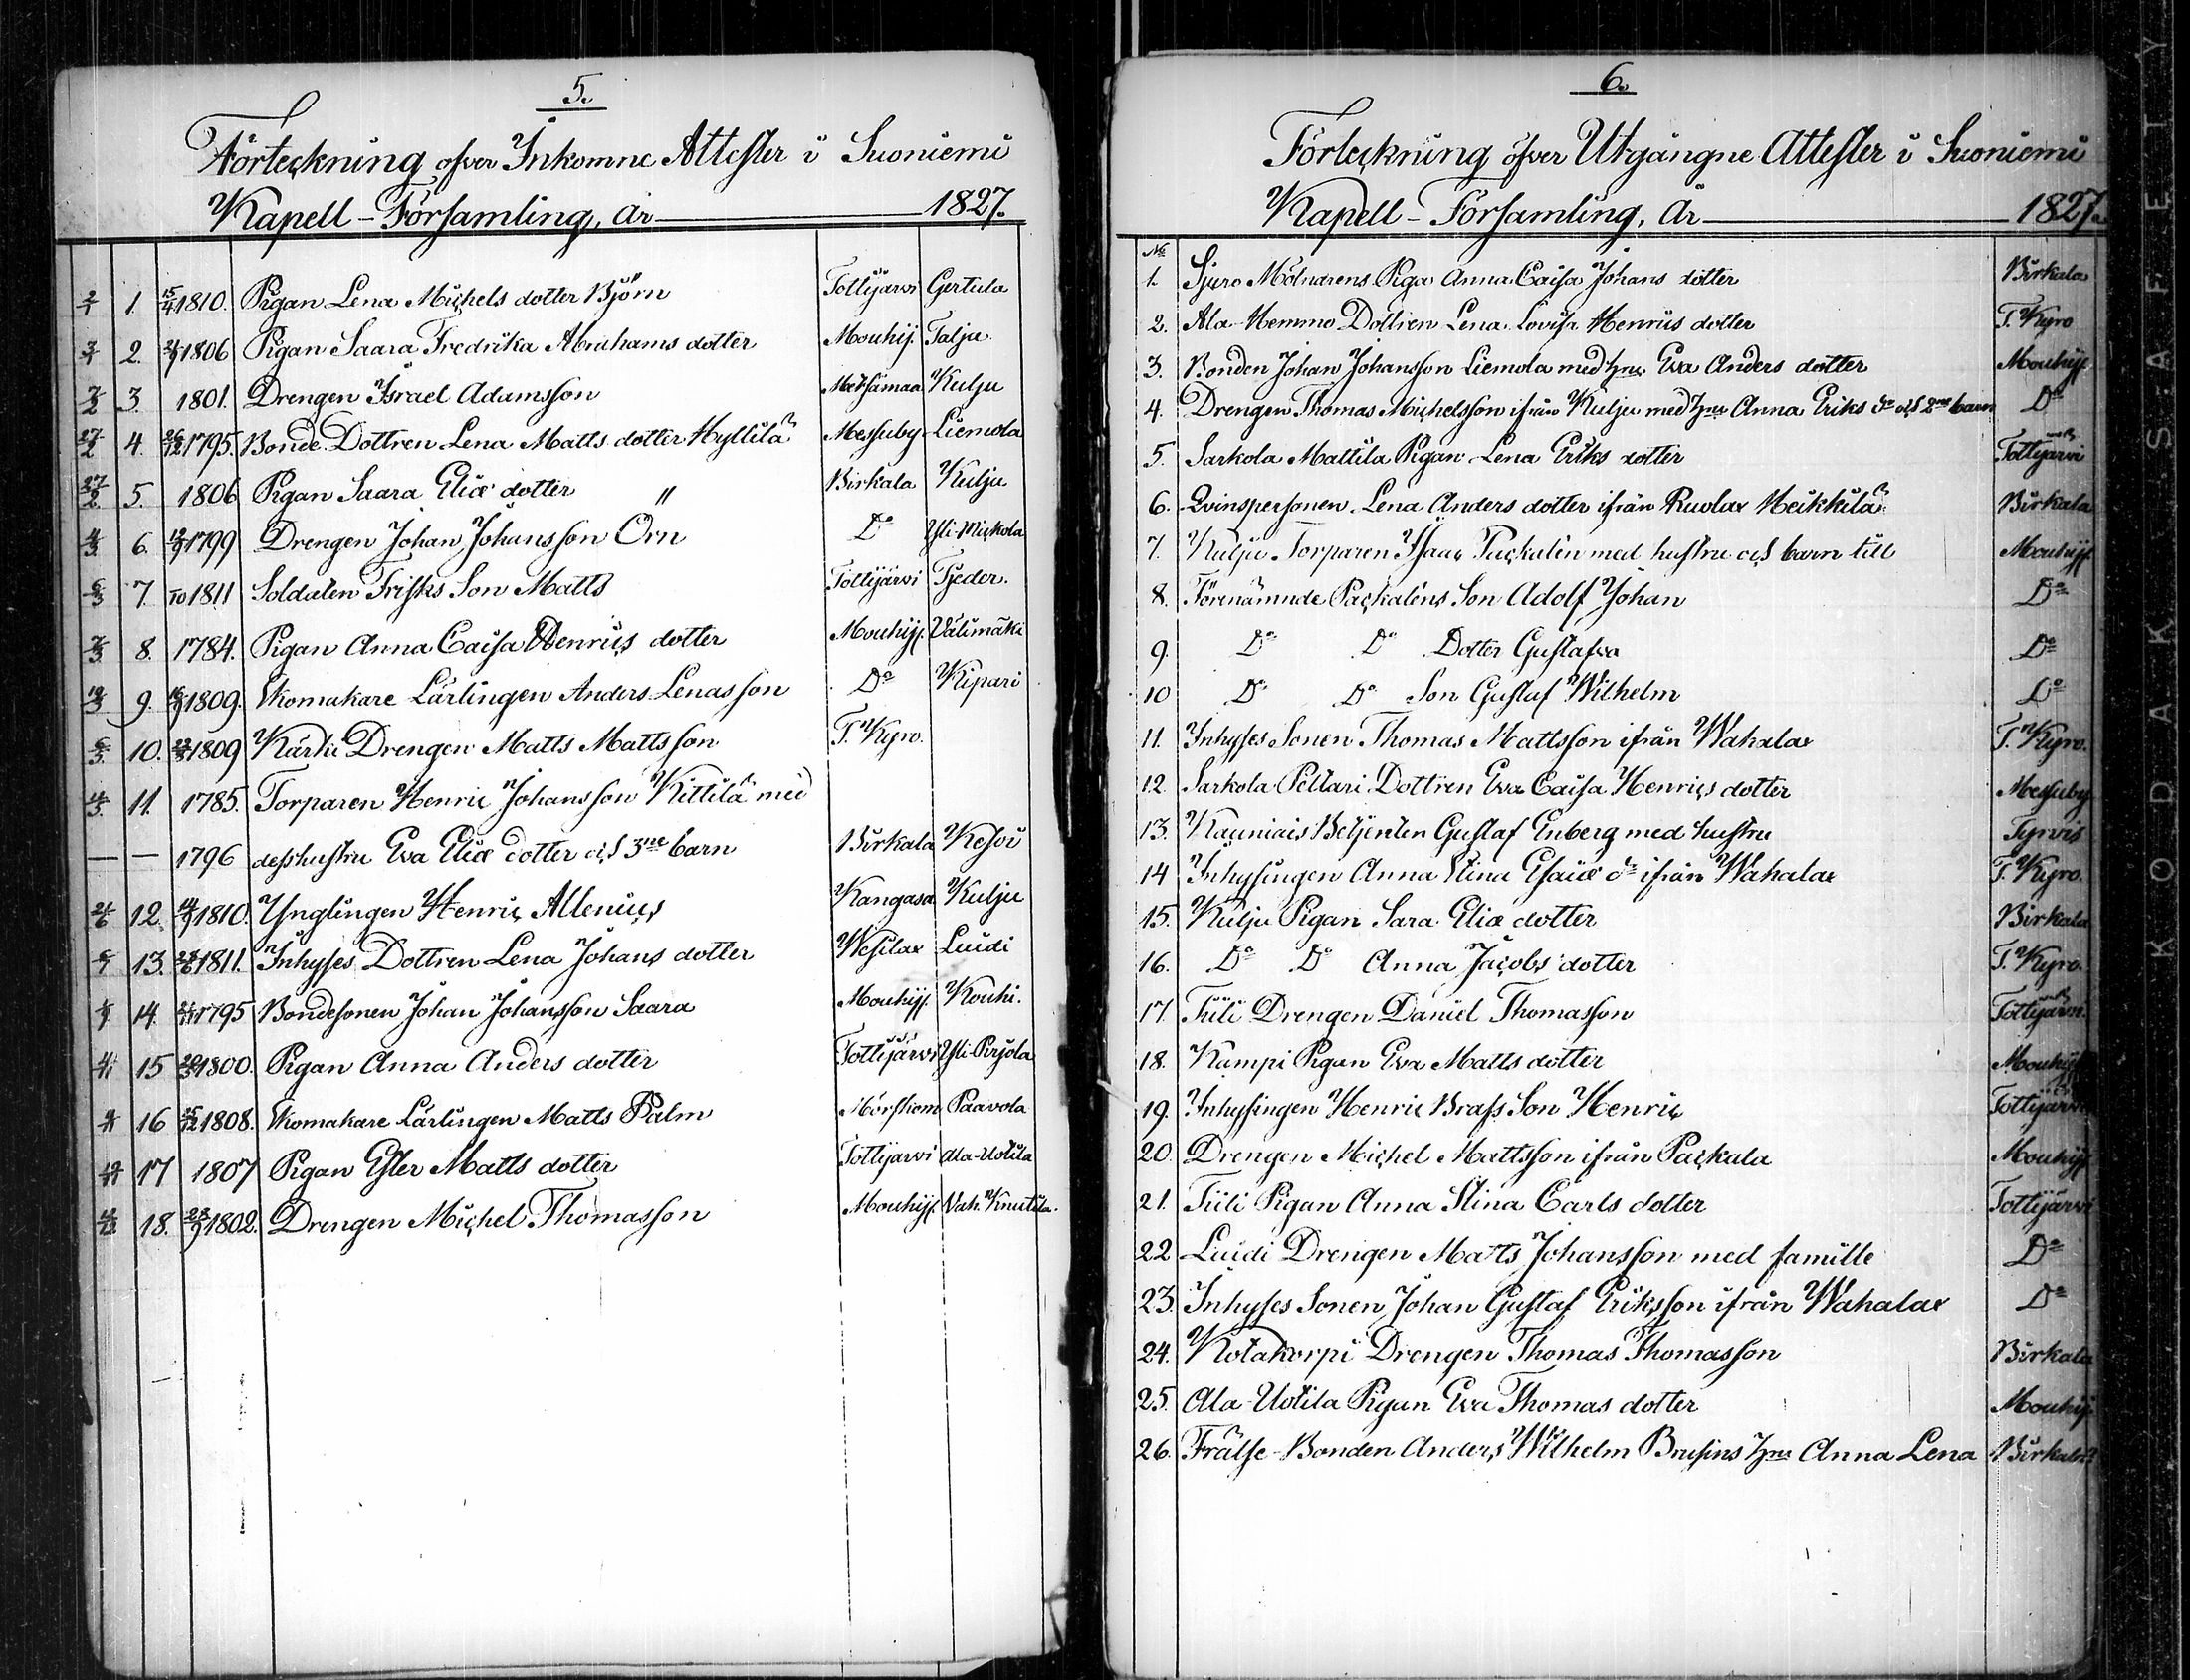 5.
Förteckning öfver Inkomne Attester i Suoniemi
Kapell-Församling, år 1827.
2/1 1. 15/4 1810. Pigan Lena Michels dotter Björn Tottijärvi Gertula
3/1 2. 1806 Pigan Saara Fredrika Abrahams dotter Mouhij. Talja.
7/2 3. 1801. Drengen Israel Adamsson Metsämaa Kulju
27/2 4. 26/12 1795. Bonde Dottren Lena Matts dotter Hyllilä Messuby Liemola
27/2 5. 1806 Pigan Saara Eliæ dotter Birkala Kulju
4/3 6. 1799 Drengen Johan Johansson Örn Do Yli-Mickola
6/3 7. 1811 Soldaten Frisks Son Matts Tottijärvi Tjeder.
7/3 8. 1784. Pigan Anna Caisa Henrics dotter Mouhijj. Välimäki
9. 1809. Skomakare Lärlingen Anders Lenasson Do Kipari
6/3 10. 1809 Kärki Drengen Matts Mattsson T. Kyro.
4/3. 11. 1785. Torparen Henric Johansson Kittilä med
— — 1796 dess hustru Eva Eliæ dotter och 3ne barn Birkala Kesoi
21/6 12. 1810. Ynglingen Henric Allenius Kangasa Kulju
6/7 13. 1811. Inhyses Dottren Lena Johans dotter Wesilax Luidi
14. 1795 Bondesonen Johan Johansson Saara Mouhijj. Kouhi.
15 1800. Pigan Anna Anders dotter Tottijärvi Yli-Pirjola
16 1808. Skomakare Lärlingen Matts Palm Mörskom Paavola
17 1807 Pigan Ester Matts dotter Tottijärvi Ala-Uotila
18. 28/9 1802. Drengen Michel Thomasson Mouhijj. Vah. Knutila.
6.
Förteckning öfver Utgångne Attester i Suoniemi
Kapell-Församling, År 1827.
No
1. Sjuro Mölnarens Piga Anna Caisa Johans dotter Birkala
2. Ala-Hemmo Dottren Lena Lovisa Henrics dotter T. Kyro
3. Bonden Johan Johansson Liemola med hru Eva Anders dotter Mouhijj.
4. Drengen Thomas Michelsson ifrån Kulju med hru Anna Eriks dr och 2ne barn Do
5. Sarkola Mattila Pigan Lena Eriks dotter Tottijärvi
6. Qvinspersonen Lena Anders dotter ifrån Ruolax Heikkilä Birkala
7. Kulju Torparen Isaac Packalén med hustru och barn till Mouhijj.
8. Förenämnde Packaléns Son Adolf Johan Do
9. Do Do Dotter Gustafva Do
10 Do Do Son Gustaf Wilhelm Do
11. Inhyses Sonen Thomas Mattsson ifrån Wahalax T. Kyro.
12. Sarkola Pellari Dottren Eva Caisa Henrics dotter Messuby
13. Kauniais Betjenten Gustaf Enberg med hustru Tyrvis
14 Inhysingen Anna Stina Esaiæ dr ifrån Wahalax T. Kyro.
15. Kulju Pigan Sara Eliæ dotter Birkala
16. Do Do Anna Jacobs dotter T. Kyro.
17. Tiili Drengen Daniel Thomasson Tottijärvi.
18. Kumpi Pigan Eva Matts dotter Mouhijj.
19. Inhysingen Henric Brass Son Henric Tottijärvi
20. Drengen Michel Mattsson ifrån Packala Mouhijj.
21. Tiili Pigan Anna Stina Carls dotter Tottijärvi
22 Luidi Drengen Matts Johansson med famille Do
23. Inhyses Sonen Johan Gustaf Eriksson ifrån Wahalax Do
24. Kotakorpi Drengen Thomas Thomasson Birkala
25. Ala-Uotila Pigan Eva Thomas dotter Mouhij.
26. Frälse-Bonden Anders Wilhelm Brusins hru Anna Lena Birkala
KODAK SAFETY